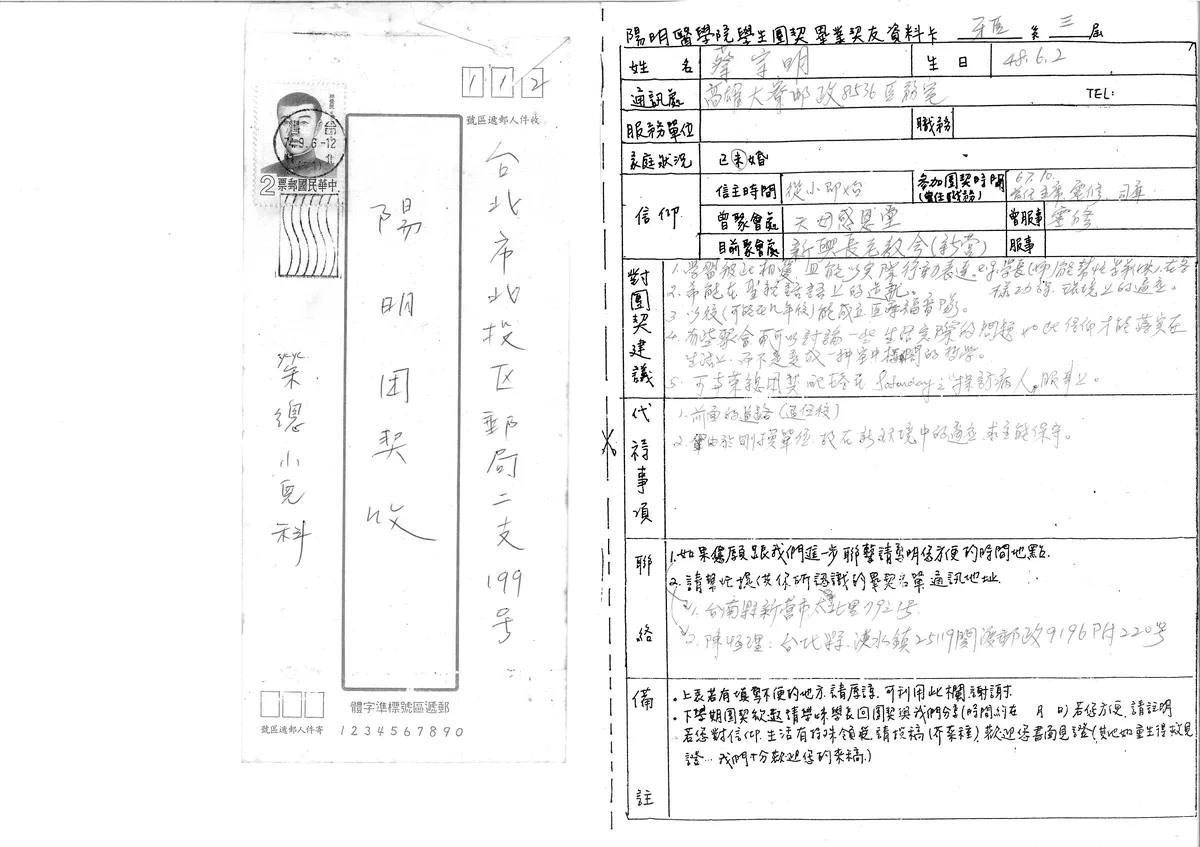 112
收件人郵遞區號
台北市北投区郵局二支199号
陽明团契收
榮總小兒科
74.9.6.-12
北
2
中華民國郵票
寄件人郵遞區號
郵遞區號標準字體
1234567890
陽明醫學院學生團契畢業契友資料卡 牙医 第 三 届
姓名 蔡宗明 生日 48.6.2
通訊處 高雄大寮郵政8536 TEL:
服務單位 職務
家庭狀況 已未婚
信仰
信主時間 從小即 參加團契時間 67.10.
(曾任職務) 曾任主席 靈修
曾聚會處 天母感恩堂 曾服事 靈修
目前聚會處 新興長老教会(新営) 服事
對團契建議
1. 學習彼此相愛 且能以實際行動表達
2. 希能在聖經話語上的造就。
樣功課、環境上的適應。
3. 以後(可能在九年後)能成立醫療福音隊。
4. 有些聚会可以討論一些生活實際的問題 信仰才能落實在
生活上 而不是變成一種空中樓閣的哲學。
5. 可與榮總團契配搭在 Saturday 之探訪病人。服事上。
代禱事項
1. 前面的道路
2. 由於剛換單位 故在新环境中的適应 求主能保守。
聯絡
1. 如果您願跟我們進一步聯繫請寫明您方便的時間地點.
2. 請幫忙提供你所認識的畢契名單通訊地址.
1. 台南縣新营市太北里792号
2. 陳恒理: 台北縣淡水鎮25119關渡郵政9196附220号
備註
• 上表若有填寫不便的地方 請原諒. 可利用此欄. 謝謝.
• 下學期團契欲邀請學姊學長回團契與我們分享(時間約在 月 日) 若您方便 請註明
若您對信仰.生活有特殊領受.請投稿(不棄種). 歡迎您書面見證(其他如重生得救見
證… 我們十分歡迎您的來稿.)